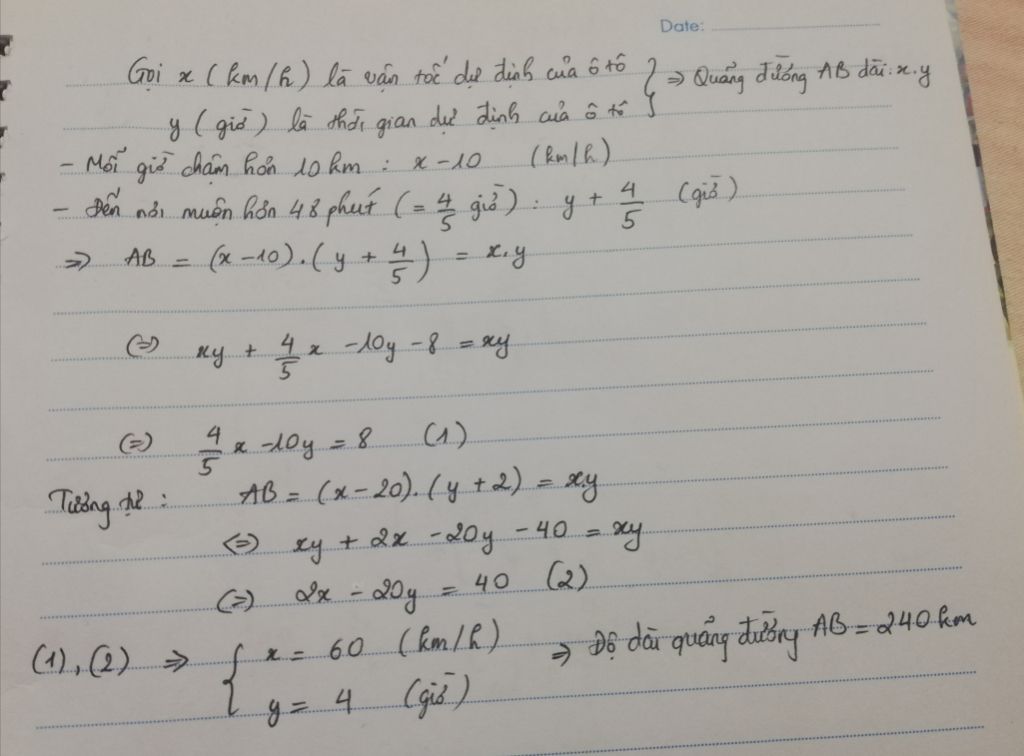 Date:
Gọi x (km/h) là vận tốc dự định của ô tô } ⇒ Quãng đường AB dài: x.y
y (giờ) là thời gian dự định của ô tô
- Mỗi giờ chậm hơn 10 km : x-10 (km/h)
- Đến nơi muộn hơn 48 phút (= 4/5 giờ) : y + 4/5 (giờ)
⇒ AB = (x-10).(y + 4/5) = x.y
(=) xy + 4/5 x -10y - 8 = xy
(=) 4/5 x -10y = 8 (1)
Tương tự : AB = (x-20).(y+2) = xy
<=> xy + 2x - 20y - 40 = xy
(=) 2x - 20y = 40 (2)
(1), (2) ⇒ { x = 60 (km/h) ⇒ Độ dài quãng đường AB = 240 km
y = 4 (giờ)